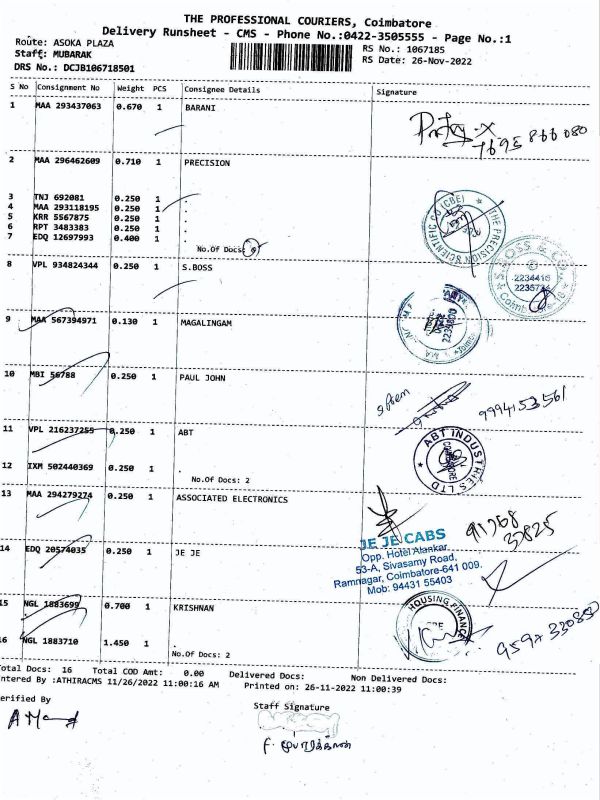 THE PROFESSIONAL COURIERS, Coimbatore
Delivery Runsheet - CMS - Phone No.:0422-3505555 - Page No.:1
Route: ASOKA PLAZA
RS No.: 1067185
Staff: MUBARAK
RS Date: 26-Nov-2022
DRS No.: DCJB106718501
S No Consignment No Weight PCS Consignee Details Signature
1 MAA 293437063 0.670 1 BARANI
7695 866 080
2 MAA 296462609 0.710 1 PRECISION
3 TNJ 692081 0.250 1 .
4 MAA 293118195 0.250 1 .
5 KRR 5567875 0.250 1 .
6 RPT 3483383 0.250 1 .
7 EDQ 12697993 0.400 1 .
No.Of Docs: 6
THE PRECISION SCIENTIFIC CO (CBE)
8 VPL 934824344 0.250 1 S.BOSS
S. BOSS & CO
2234416
9 MAA 567394971 0.130 1 MAGALINGAM
10 MBI 56788 0.250 1 PAUL JOHN
9994153561
11 VPL 216237255 0.250 1 ABT
ABT INDUSTRIES LTD
COIMBATORE
12 IXM 502440369 0.250 1 .
No.Of Docs: 2
13 MAA 294279274 0.250 1 ASSOCIATED ELECTRONICS
91768
37825
14 EDQ 20574035 0.250 1 JE JE
JE JE CABS
Opp. Hotel Alankar,
53-A, Sivasamy Road,
Ramnagar, Coimbatore-641 009.
Mob: 94431 55403
15 NGL 1883699 0.700 1 KRISHNAN
HOUSING FINANCE
16 NGL 1883710 1.450 1 .
No.Of Docs: 2
Total Docs: 16 Total COD Amt: 0.00 Delivered Docs: Non Delivered Docs:
Entered By :ATHIRACMS 11/26/2022 11:00:16 AM Printed on: 26-11-2022 11:00:39
Verified By
Staff Signature